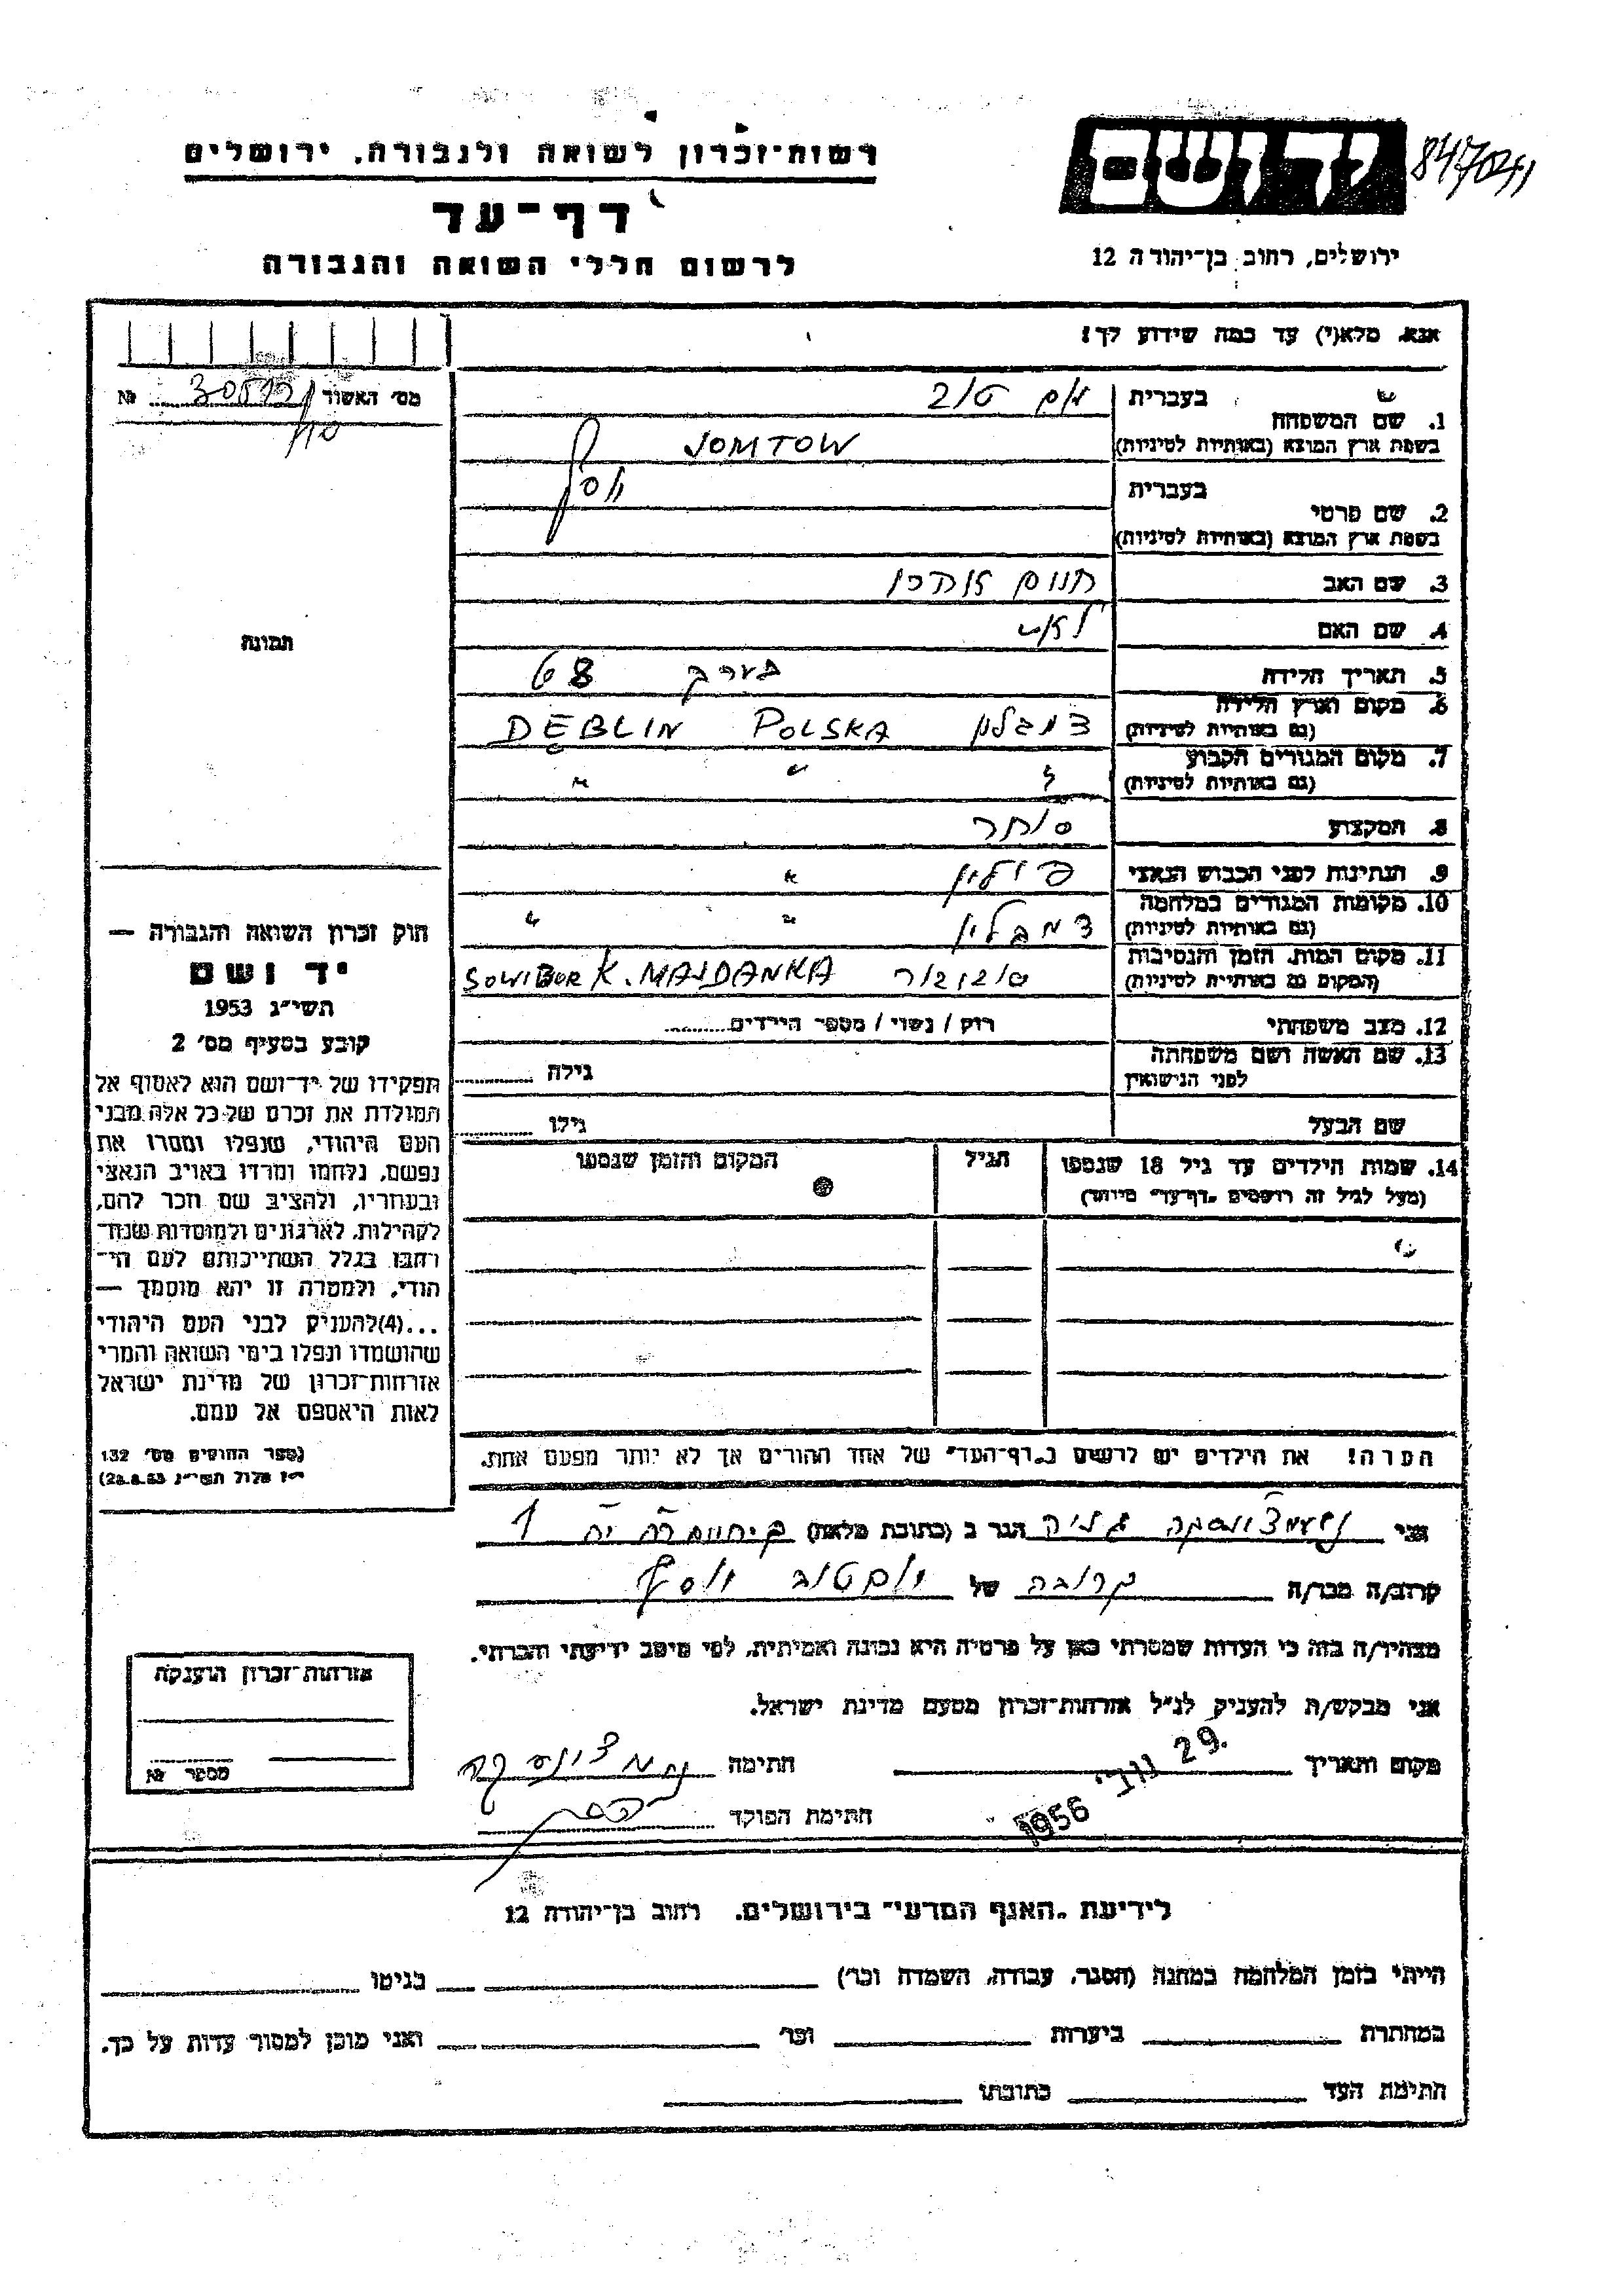 רשות-זכרון לשואה ולגבורה, ירושלים
יד ושם
847041
דף-עד
לרשום חללי השואה והגבורה
ירושלים, רחוב בן-יהודה 12
אנא, מלא(י) עד כמה שידוע לך!
מס' האשור №
1. שם המשפחה בעברית יום טוב
בשפת ארץ המוצא (באותיות לטיניות) JOMTOW
2. שם פרטי בעברית יוסף
בשפת ארץ המוצא (באותיות לטיניות)
3. שם האב חיים אהרן
4. שם האם לאה
5. תאריך הלידה בערך 68
6. מקום וארץ הלידה
(גם באותיות לטיניות) דמבלין POLSKA DĘBLIN
7. מקום המגורים הקבוע
(גם באותיות לטיניות) " "
8. המקצוע סוחר
9. הנתינות לפני הכבוש הנאצי פולין "
10. מקומות המגורים במלחמה
(גם באותיות לטיניות) דמבלין " "
11. מקום המות, הזמן והנסיבות
(המקום גם באותיות לטיניות) סוביבור SOWIBOR K. MAJDANKA
12. מצב משפחתי רוק / נשוי / מספר הילדים
13. שם האשה ושם משפחתה
לפני הנישואין גילה
שם הבעל גילו
14. שמות הילדים עד גיל 18 שנספו הגיל המקום והזמן שנספו
(מעל לגיל זה רושמים "דף-עד" מיוחד)
הערה! את הילדים יש לרשום ב"דף-העד" של אחד ההורים אך לא יותר מפעם אחת.
תמונה
חוק זכרון השואה והגבורה —
יד ושם
תשי"ג 1953
קובע בסעיף מס' 2
תפקידו של יד-ושם הוא לאסוף אל
המולדת את זכרם של כל אלה מבני
העם היהודי, שנפלו ומסרו את
נפשם, נלחמו ומרדו באויב הנאצי
ובעוזריו, ולהציב שם וזכר להם,
לקהילות, לארגונים ולמוסדות שנח-
רבו בגלל השתייכותם לעם הי-
הודי, ולמטרה זו יהא מוסמך —
...(4) להעניק לבני העם היהודי
שהושמדו ונפלו בימי השואה והמרי
אזרחות-זכרון של מדינת ישראל
לאות היאספם אל עמם.
(ספר החוקים מס' 132
י"ז אלול תשי"ג 28.8.53)
אני הגר ב (כתובת מלאה) 1
קרוב/ה מכר/ה קרובה של יום טוב יוסף
מצהיר/ה בזה כי העדות שמסרתי כאן על פרטיה היא נכונה ואמיתית, לפי מיטב ידיעתי והכרתי.
אני מבקש/ת להעניק לנ"ל אזרחות-זכרון מטעם מדינת ישראל.
מקום ותאריך 29. נוב' 1956 חתימה
חתימת הפוקד
אזרחות-זכרון הוענקה
מספר №
לידיעת "האגף המדעי" בירושלים, רחוב בן-יהודה 12
הייתי בזמן המלחמה במחנה (הסגר, עבודה, השמדה וכו') בגיטו
במחתרת ביערות וכו' ואני מוכן למסור עדות על כך.
חתימת העד כתובתו